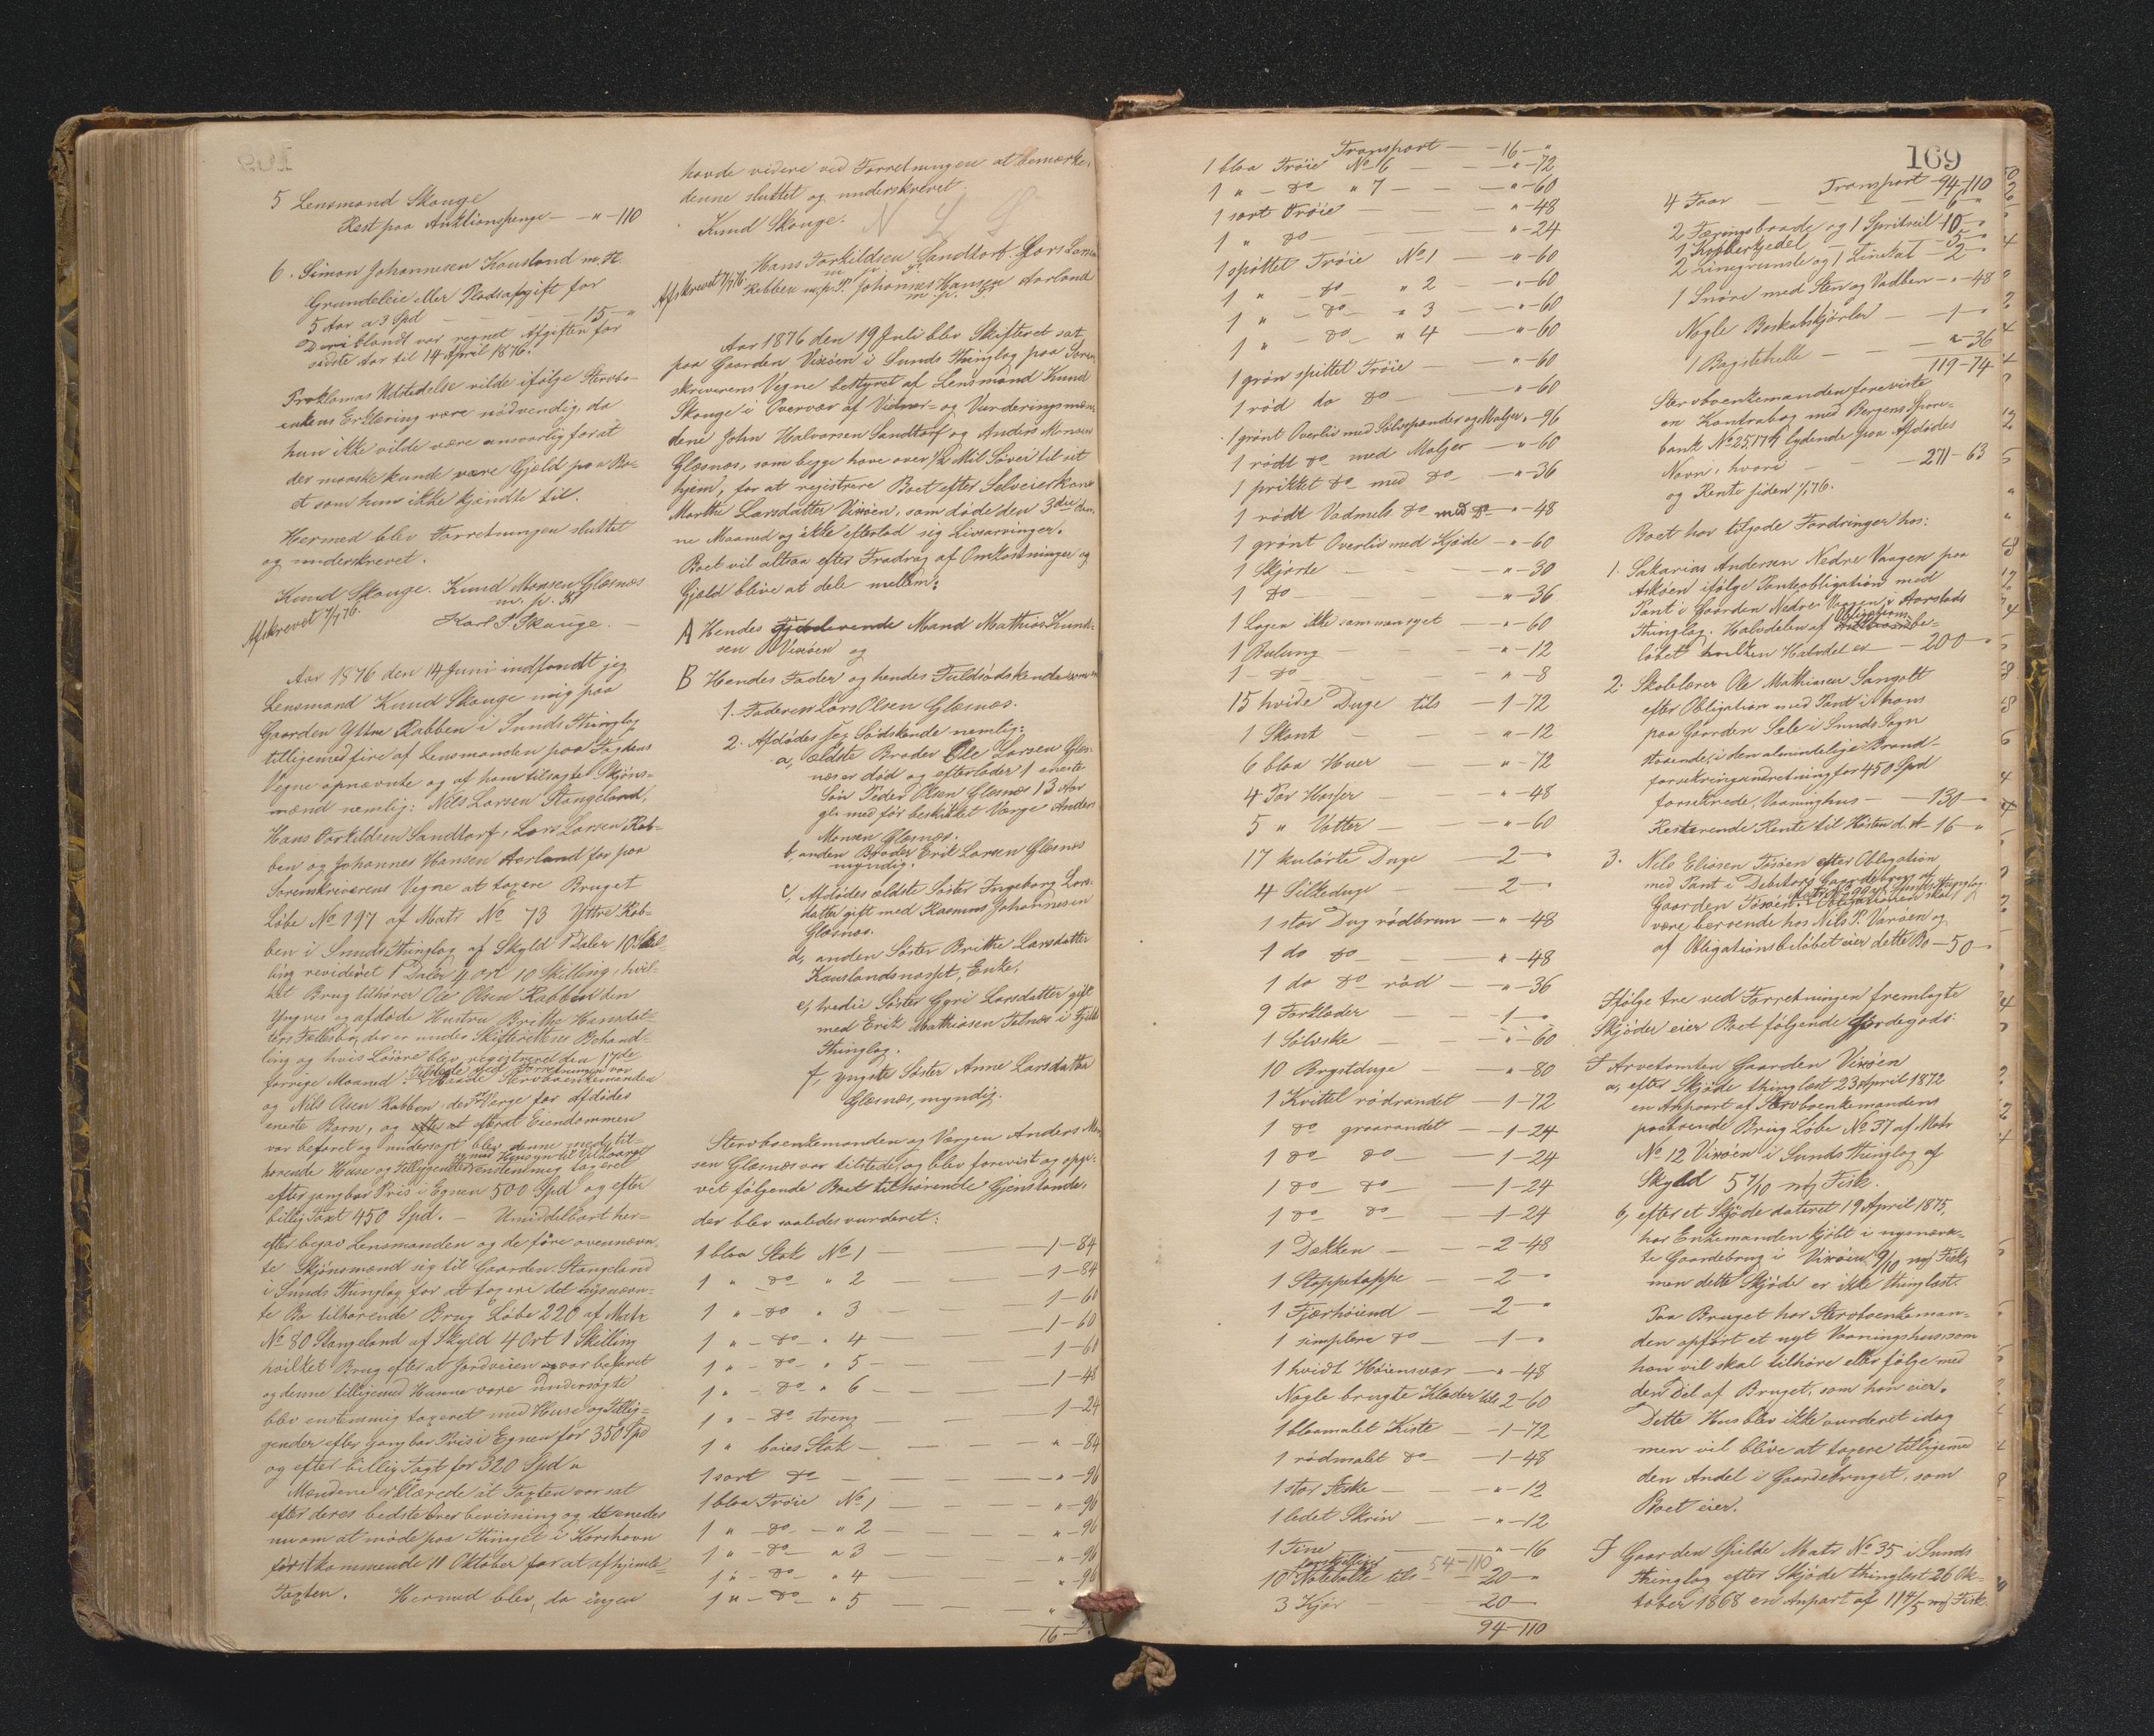 5 Lensmand Skauge
Rest paa Auktionspenge — „ — 110
6. Simon Johannesen Kausland m. H.
Grundeleie eller Pladsafgift for
5 Aar a 3 Spd — 15 — „
Deriblandt var regnet Afgiften for
sidste Aar til 14 April 1876.
Proklamas Udstedelse vilde ifølge Stervbo-
enkens Erklæring være nødvendig, da
hun ikke vilde være ansvarlig for at
der maaske kunde være Gjæld paa Bo-
et som hun ikke kjendte til.
Hermed blev Forretningen sluttet
og underskrevet.
Knud Skauge. Knud Monsen Glæsnæs
m. p. P.
Afskrevet 7/7 76.
Karl P. Skauge.
Aar 1876 den 14 Juni indfandt jeg
Lensmand Knud Skauge mig paa
Gaarden Yttre Rabben i Sunds Thinglag
tilligemed fire af Lensmanden paa Fogdens
Vegne opnævnte og af ham tilsagte Skjøns-
mænd nemlig: Nils Larsen Stangeland,
Hans Torkildsen Sandtorf, Lars Larsen Rab-
ben og Johannes Hansen Aarland for paa
Sorenskriverens Vegne at taxere Bruget
Løbe No 197 af Matr No 73 Yttre Rab-
ben i Sunds Thinglag af Skyld 1 Daler 10 Skil-
ling revideret 1 Daler 4 Ort 10 Skilling, hvil-
ket Brug tilhører Ole Olsen Rabben den
Yngres og afdøde Hustru Brithe Hansdat-
ters Fællesbo, der er under Skifterettens Behand-
ling og hvis Løsøre blev registreret den 17de
forrige Maaned. Tilstede ved Forretningen var
baade Stervboenkemanden
og Nils Olsen Rabben, der er Værge for afdødes
eneste Barn, og efter at efterat Eiendommen
var befaret og undersøgt blev denne med til-
hørende Huse og Tilliggender med Hensyn til Vilkaarge
enstemmig taxeret
efter gangbar Pris i Egnen 500 Spd og efter
billig Taxt 450 Spd. — Umiddelbart her-
efter begav Lensmanden og de føre ovennævn-
te Skjønsmænd sig til Gaarden Stangeland
i Sunds Thinglag for at taxere det nysnævn-
te Bo tilhørende Brug Løbe 220 af Matr
No 80 Stangeland af Skyld 4 Ort 1 Skilling
hvilket Brug efter at Jordveien var befaret
og denne tilligemed Husene vare undersøgte
blev enstemmig taxeret med Huse og Tillig-
gender efter gangbar Pris i Egnen for 350 Spd
og efter billig Taxt for 320 Spd „
Mændene erklærede at Taxten var sat
efter deres bedste Overbevisning og
nu om at møde paa Thinget i Korshavn
førstkommende 11 Oktober for at afhjemle
Taxten. Hermed blev, da ingen
havde videre ved Forretningen at bemærke,
denne sluttet og underskrevet.
Knud Skauge. N L S
Hans Torkildsen Sandtorf. Lars Larsen
m. p. P.
Afskrevet 7/7 76.
Rabben m. p. P. Johannes Hansen Aarland
m. p. P.
Aar 1876 den 19 Juli blev Skifteret sat
paa Gaarden Vixøen i Sunds Thinglag paa Soren-
skriverens Vegne bestyret af Lensmand Knud
Skauge i Overvær af Vidner- og Vurderingsmæn-
dene John Halvorsen Sandtorf og Anders Monsen
Glæsnæs, som begge have over 1/2 Mil Søvei til sit
hjem, for at registrere Boet efter Selveierkone
Marthe Larsdatter Vixøen, som døde den 3die den-
ne Maaned og ikke efterlod sig Livsarvinger.
Boet vil altsaa efter Fradrag af Omkostninger og
Gjæld blive at dele mellem:
A Hendes Gjenlevende Mand Mathias Knud-
sen Vixøen og
B Hendes Fader og hendes Fuldsødskende
1. Faderen Lars Olsen Glæsnæs.
2. Afdødes sex Sødskende nemlig:
a, ældste Broder Ole Larsen Glæs-
næs er død og efterlader 1 eneste
Søn Peder Olsen Glæsnæs 13 Aar
gl. med før beskikket Værge Anders
Monsen Glæsnæs.
b, anden Broder Erik Larsen Glæsnæs
myndig.
c, Afdødes ældste Søster Ingeborg Lars-
datter gift med Rasmus Johannesen
Glæsnæs.
d, anden Søster Brithe Larsdatter
Kauslandsnæsset, Enke,
e, tredie Søster Gyri Larsdatter gift
med Erik Mathiasen Tølnæs i Fjeld
Thinglag.
f, yngste Søster Anne Larsdatter
Glæsnæs, myndig.
Stervboenkemanden og Værgen Anders Mon-
sen Glæsnæs var tilstede, og blev forevist og opgi-
vet følgende Boet tilhørende Gjenstande,
der blev saaledes vurderet:
1 blaa Stak No 1 — 1 — 84
1 „ — do „ 2 — 1 — 84
1 „ — do „ 3 — 1 — 60
1 „ — do „ 4 — 1 — 60
1 „ — do „ 5 — 1 — 60
1 „ — do „ 6 — 1 — 48
1 „ — do streng — 1 — 24
1 „ baies Stak — „ — 84
1 sort do — „ — 96
1 blaa Trøie No 1 — „ — 96
1 „ — do — „ 2 — „ — 96
1 „ — do — „ 3 — „ — 96
1 „ — do — „ 4 — „ — 96
1 „ — do — „ 5 — „
16 — „
169
Transport — 16 — „
1 blaa Trøie No 6 — „ — 72
1 „ — do „ 7 — „ — 60
1 sort Trøie — „ — 48
1 „ do — „ — 24
1 spøttet Trøie No 1 — „ — 60
1 „ — do „ 2 — „ — 60
1 „ — do „ 3 — „ — 60
1 „ — do „ 4 — „ — 60
1 grøn spittet Trøie — „ — 60
1 rød do do — „ — 60
1 grønt Overliv med Sølvspænder og Maljer „ — 96
1 rødt do med Maljer — „ — 60
1 prikket do med do — „ — 36
1 rødt Vadmels do med do — „ — 48
1 grønt Overliv med Kjøde — „ — 60
1 Skjørte — „ — 30
1 do — „ — 36
1 Lagen ikke sammensyet — „ — 60
1 Bulung — „ — 12
1 do — „ — 8
15 hvide Duge tils — 1 — 72
1 Skant — „ — 12
6 blaa Huer — „ — 72
4 Par Hoser — „ — 48
5 „ Votter — „ — 60
17 kulørte Duge — 2 — „
4 Silkeduge — 2 — „
1 stor Dug rødbrun — „ — 48
1 do do — „ — 48
1 do do rød — „ — 36
9 Forklæder — 1 — „
1 Sølvske — „ — 60
10 Brystduge — „ — 80
1 Kvittel rødrandet — 1 — 72
1 do graarandet — 1 — 24
1 do do — 1 — 24
1 do do — 1 — 24
1 do do — 1 — 24
1 Dækken — 2 — 48
1 Stoppetappe — 2 — „
1 Fjærhøiend — 2 — „
1 simplere do — 1 — „
1 hvidt Høiensvar — „ — 48
Nogle brugte Klæder tils 2 — 60
1 blaamalet Kiste — 1 — 72
1 rødmalet do — 1 — 48
1 stor Æske — „ — 12
1 ledet Skrin — „ — 12
1 Tine — „ — 16
54 — 110
10 forskjellige Notebolke tils — 20 — „
3 Kjør 20 —
94 — 110
Transport — 94 — 110
4 Faar — 6 „
2 Færingsbaade og 1 Spritseil 10 — „
1 Kobberkjedel — 5 — „
2 Linegrunde og 1 Linstat — 2 — „
1 Snøre med Sten og Vadben — „ — 48
Nogle Boskabskjørler — 1 — „
1 Bagstehelle — „ — 36
119 — 74
Stervboenkemanden foreviste
en Kontrabog med Bergens Spare-
bank No 25179 lydende paa Afdødes
Navn, hvori — 271 — 63
og Rente siden 1/1 76.
Boet har tilgode Fordringer hos:
1. Sakarias Andersen Nedre Vaagen paa
Askøen ifølge Panteobligation med
Pant i Gaarden Nedre Vaagen i Aarstads
Thinglag. Halvdelen af Obligationsbe-
løbet hvilken Halvdel er — 200 — „
2. Skolelærer Ole Mathiasen Sangolt
efter Obligation med Pant i hans
paa Gaarden Sele i Sunds Sogn
staaende, i den almindelige Brand-
forsikringsindretning for 450 Spd
forsikrede, Vaaninghus — 130 — „
Resterende Rente til Høsten d. A — 16 — „
3. Nils Eliasen Toføen efter Obligation
med Pant i Debitors Gaardebrug af
Gaarden Toføen Matr No 99 af Sunds Thinglag.
Obligationen skal
være beroende hos Nils P. Varøen og
af Obligationsbeløbet eier dette Bo — 50 — „
Ifølge tre ved Forretningen fremlagte
Skjøder eier Boet følgende Jordegods:
I Arvetomten Gaarden Vixøen
a, efter Skjøde thinglæst 23 April 1872
en Anpart af Stervboenkemandens
paaboende Brug Løbe No 37 af Matr
No 12 Vixøen i Sunds Thinglag af
Skyld 5 7/10 mk Fisk.
b, efter et Skjøde dateret 19 April 1875,
har Enkemanden kjøbt i nysnævn-
te Gaardebrug i Vixøen 9/10 mk Fisk,
men dette Skjøde er ikke thinglæst.
Paa Bruget har Stervboenkeman-
den opført et nyt Vaaningshus, som
han vil skal tilhøre eller følge med
den Del af Bruget, som han eier.
Dette Hus blev ikke vurderet idag
men vil blive at taxere tilligemed
den Andel i Gaardebruget, som
Boet eier.
I Gaarden Spilde Matr No 35 i Sunds
Thinglag efter Skjøde thinglæst 26 Ok-
tober 1868 en Anpart af 11 4/5 mk Fisk.